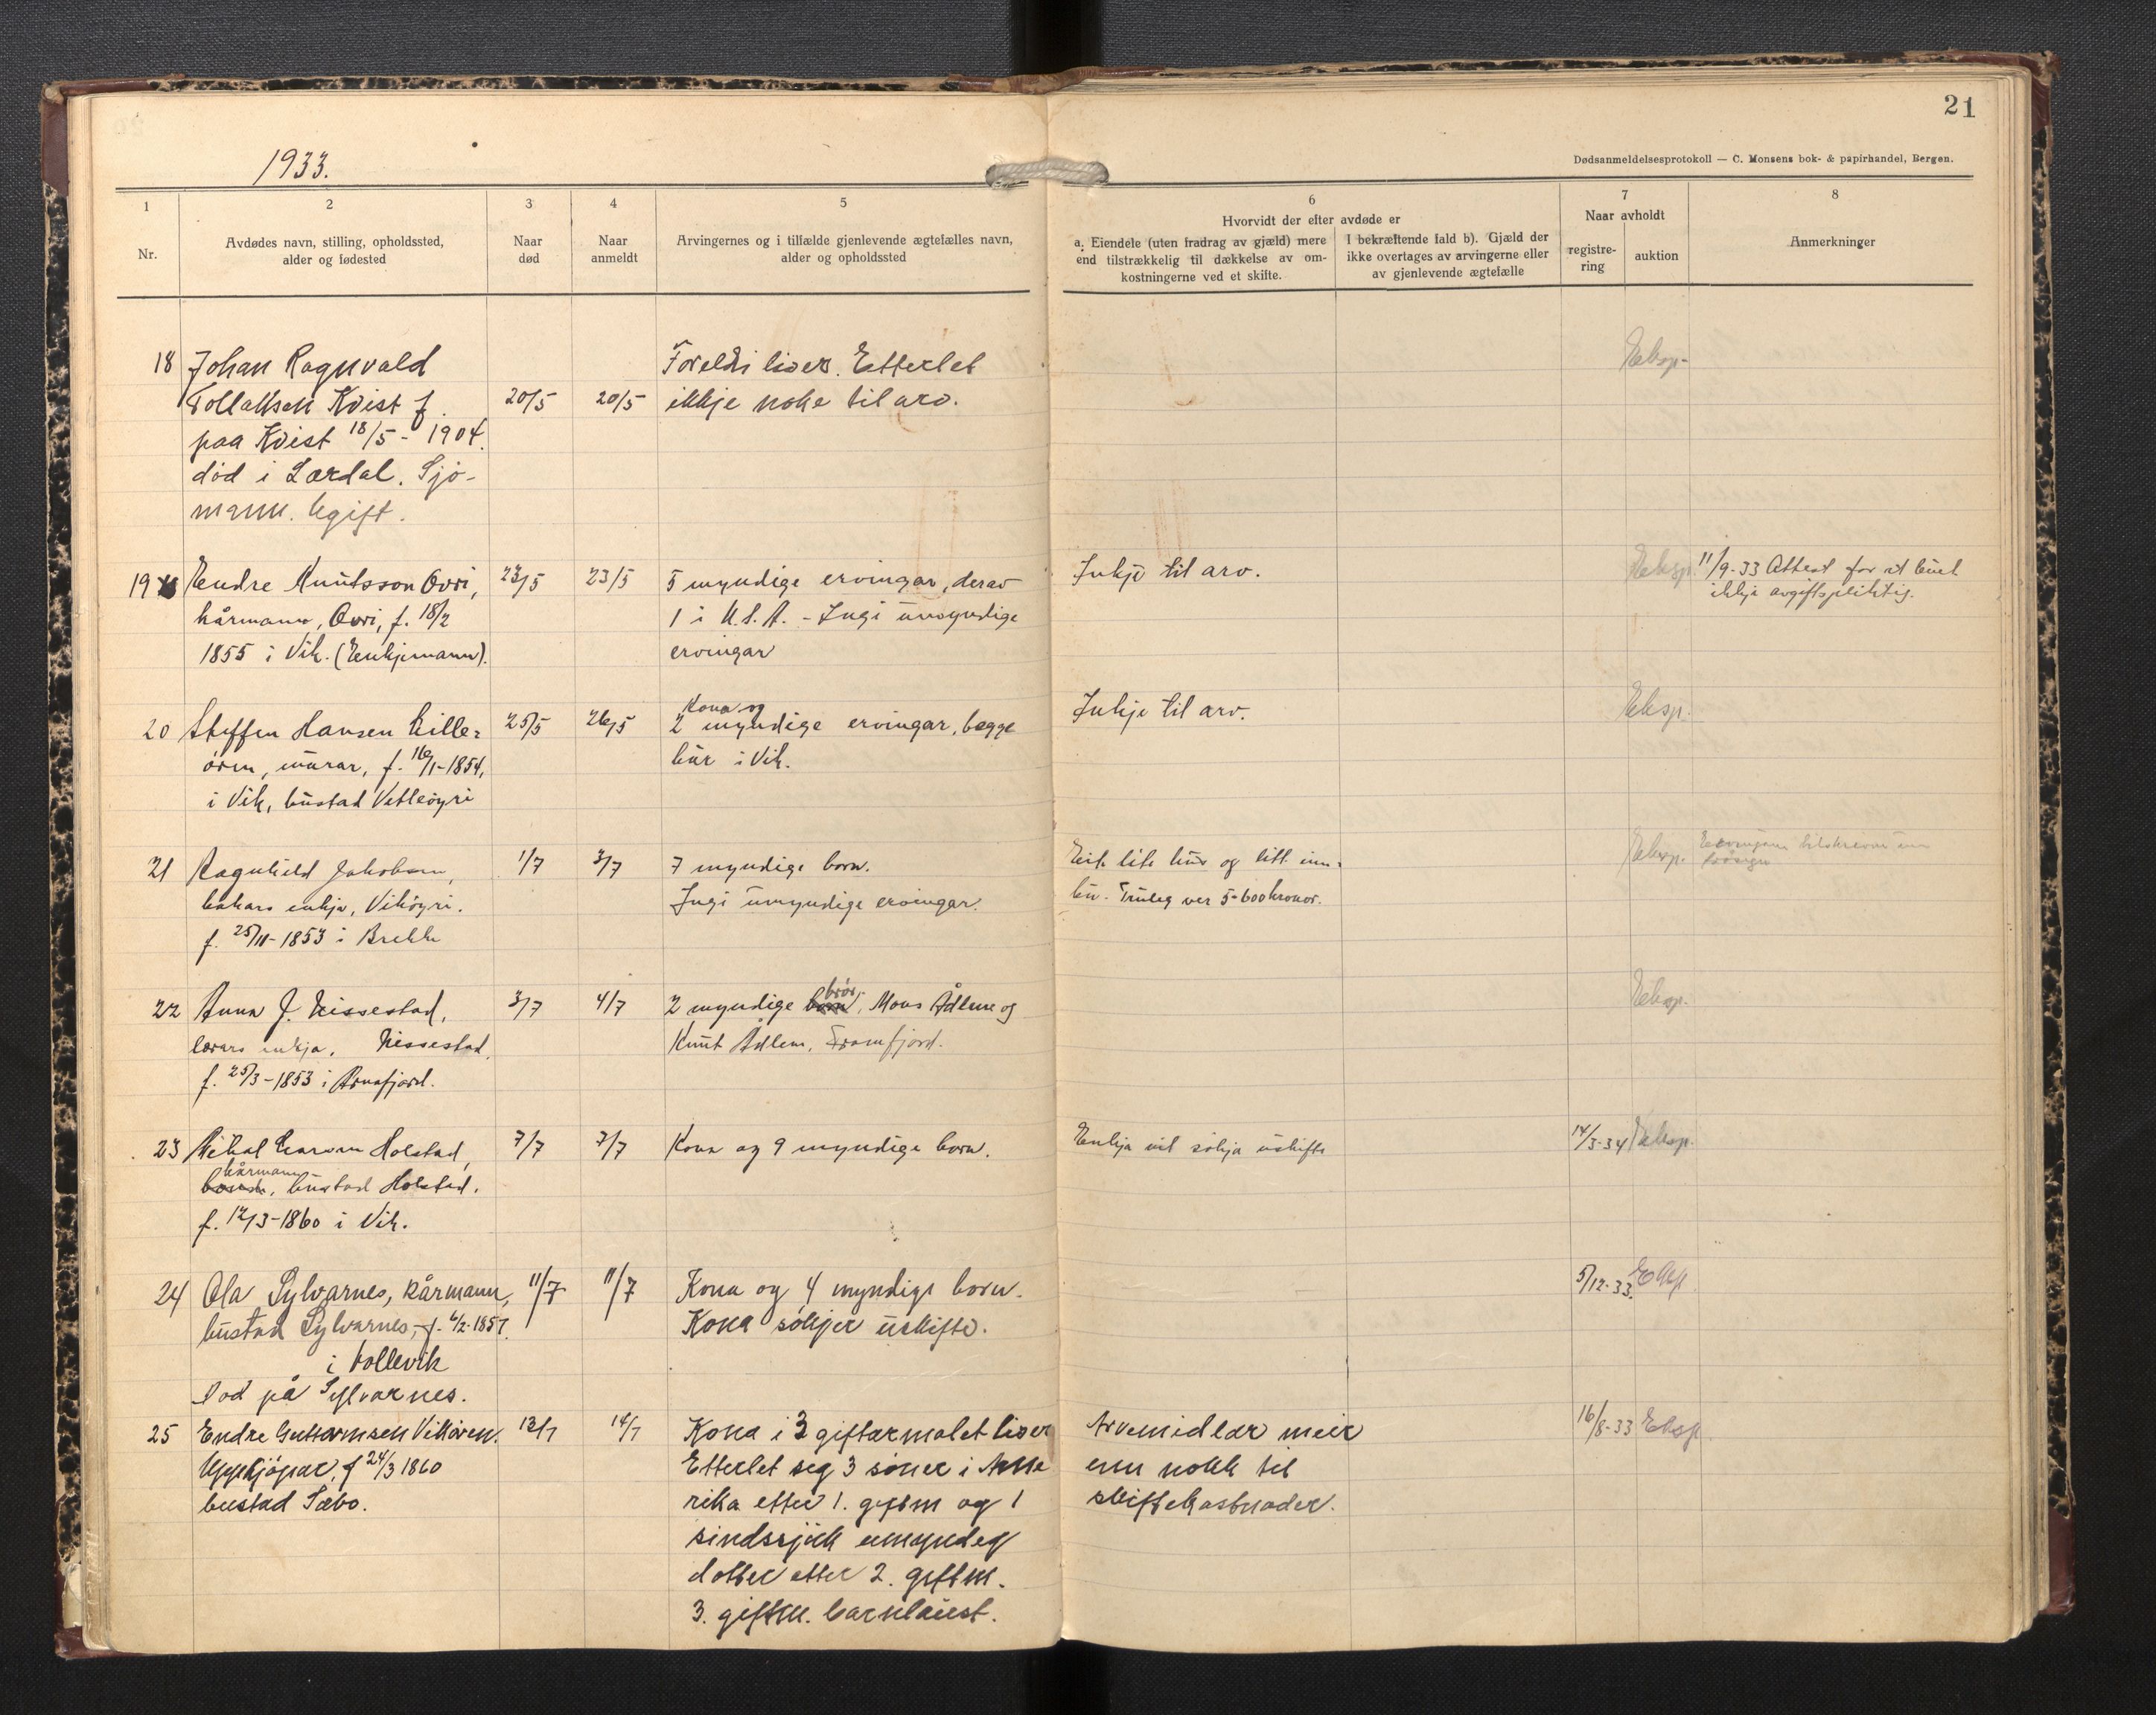 21
Dødsanmeldelsesprotokoll — C. Monsens bok- & papirhandel, Bergen.
1933.
1
Nr.
2
Avdødes navn, stilling, opholdssted,
alder og fødested
3
Naar
død
4
Naar
anmeldt
5
Arvingernes og i tilfælde gjenlevende ægtefælles navn,
alder og opholdssted
6
Hvorvidt der efter avdøde er
a. Eiendele (uten fradrag av gjæld) mere
end tilstrækkelig til dækkelse av om-
kostningerne ved et skifte.
I bekræftende fald b). Gjæld der
ikke overtages av arvingerne eller
av gjenlevende ægtefælle
7
Naar avholdt
registre-
ring
auktion
8
Anmerkninger
18 Johan Ragnvald
Tollaksen Kvist f.
paa Kvist 18/5 - 1904.
död i Lærdal. Sjö-
mann. Ugift.
20/5
20/5
Foreldri liver. Etterlet
ikkje noke til arv.
Eksp.
19 Endre Knutsson Ovri,
kårmann, Ovri, f. 18/2
1855 i Vik. (Enkjemann).
23/5
23/5
5 myndige ervingar, derav
1 i U.S.A. - Ingi umyndige
ervingar
Inkje til arv.
Eksp.
11/9-33 Attest for at buet
ikkje avgiftspliktig.
20 Steffen Hansen Lille-
ören, murar, f. 16/1-1854,
i Vik, bustad Vetleöyri
25/5
26/5
Kona og
2 myndige ervingar, begge
bur i Vik.
Inkje til arv.
Eksp.
21 Ragnhild Jakobsen,
bakars enkja, Viköyri.
f. 25/11-1853 i Brekke
1/7
3/7
7 myndige born.
Ingi umyndige ervingar.
Eit lite hus og litt inn-
bu. Truleg ver 5-600 kronor.
Eksp.
22 Anna J. Nissestad,
lærars enkja, Nissestad,
f. 25/3-1853 i Arnafjord.
3/7
4/7
brör
2 myndige born, Mons Ådlem og
Knut Ådlem, Framfjord.
Eksp.
23 Mikal Larsen Holstad,
kårmann
bonde, bustad Holstad.
f. 12/3-1860 i Vik.
7/7
7/7
Kona og 9 myndige born.
Enkja vil sökja uskifte
14/3-34 Eksp.
24 Ola Sylvarnes, kårmann,
bustad Sylvarnes, f. 6/2-1857.
i Follevik
Död på Sylvarnes.
11/7
11/7
Kona og 4 myndige born.
Kona sökjer uskifte.
5/12-33. Eksp.
25 Endre Guttormsen Vikören.
Uppkjöpar, f 24/3 1860
bustad Sæbo.
13/7
14/7
Kona i 3 giftarmalet liver
Etterlet seg 3 söner i Ame
rika etter 1. giftm og 1
sindssjuk umyndeg
dotter etter 2. giftm.
3. giftm. barnlaust.
Arvemidlar meir
enn nokk til
skiftekostnader.
16/8-33 Eksp.